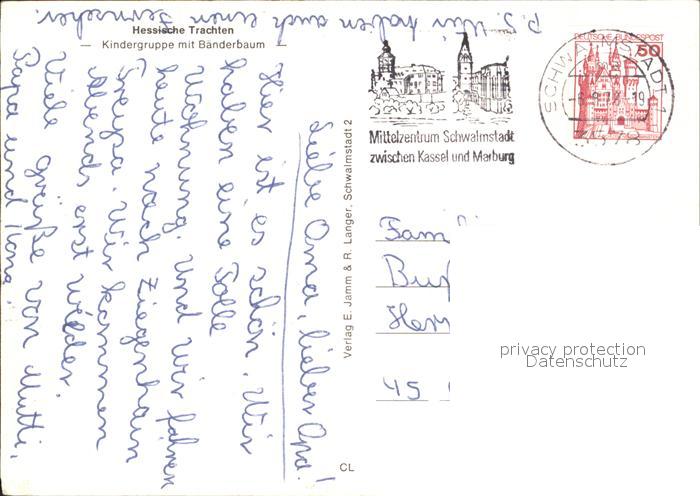 Hessische Trachten
Kindergruppe mit Bänderbaum
P.S. Wir haben auch einen Fernseher.
Liebe Oma, lieber Opa!
Hier ist es schön. Wir
haben eine Tolle
Wohnung. Und wir fahren
heute nach Ziegenhain
Wir kommen
Abends erst wieder.
Viele grüße von Mutti,
Papa und
Verlag E. Jamm & R. Langer, Schwalmstadt 2
CL
Mittelzentrum Schwalmstadt
zwischen Kassel und Marburg
SCHWALMSTADT 1
3578
DEUTSCHE BUNDESPOST
50
Fam
45
privacy protection
Datenschutz